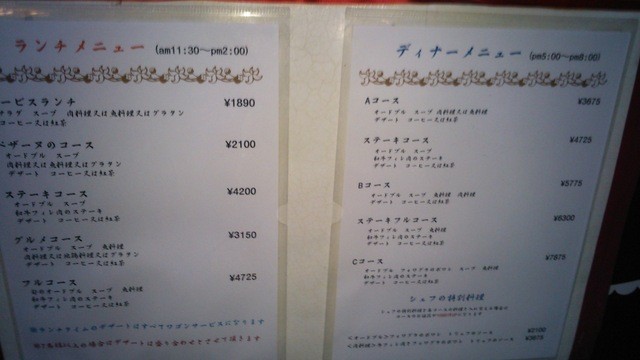 ランチメニュー (am11:30〜pm2:00)
ービスランチ ¥1890
サラダ スープ 肉料理又は魚料理又はグラタン
デザート コーヒー又は紅茶
ペザーヌのコース ¥2100
オードブル スープ
肉料理又は魚料理又はグラタン
デザート コーヒー又は紅茶
ステーキコース ¥4200
オードブル スープ
和牛フィレ肉のステーキ
デザート コーヒー又は紅茶
グルメコース ¥3150
オードブル スープ 魚料理
肉料理又は グラタン
デザート コーヒー又は紅茶
フルコース ¥4725
オードブル スープ 魚料理
和牛フィレ肉のステーキ
デザート コーヒー又は紅茶
※ランチタイムのデザートはすべてワゴンサービスになります
様以上の場合はデザートは盛り合わせさせて頂きます
ディナーメニュー (pm5:00〜pm9:00)
Aコース ¥3675
オードブル スープ 肉料理又は魚料理
デザート コーヒー又は紅茶
ステーキコース ¥4725
オードブル スープ
和牛フィレ肉のステーキ
デザート コーヒー又は紅茶
Bコース ¥5775
オードブル スープ 魚料理 肉料理
デザート コーヒー又は紅茶
ステーキフルコース ¥6300
オードブル スープ 魚料理
和牛フィレ肉のステーキ
デザート コーヒー又は紅茶
Cコース ¥7875
オードブル フォアグラのポワレ スープ 魚料理
和牛フィレ肉のステーキ
デザート コーヒー又は紅茶
シェフの特別料理
<オードブル>フォアグラのポワレ トリュフのソース ¥2100
<肉料理> トリュフのソース ¥3675